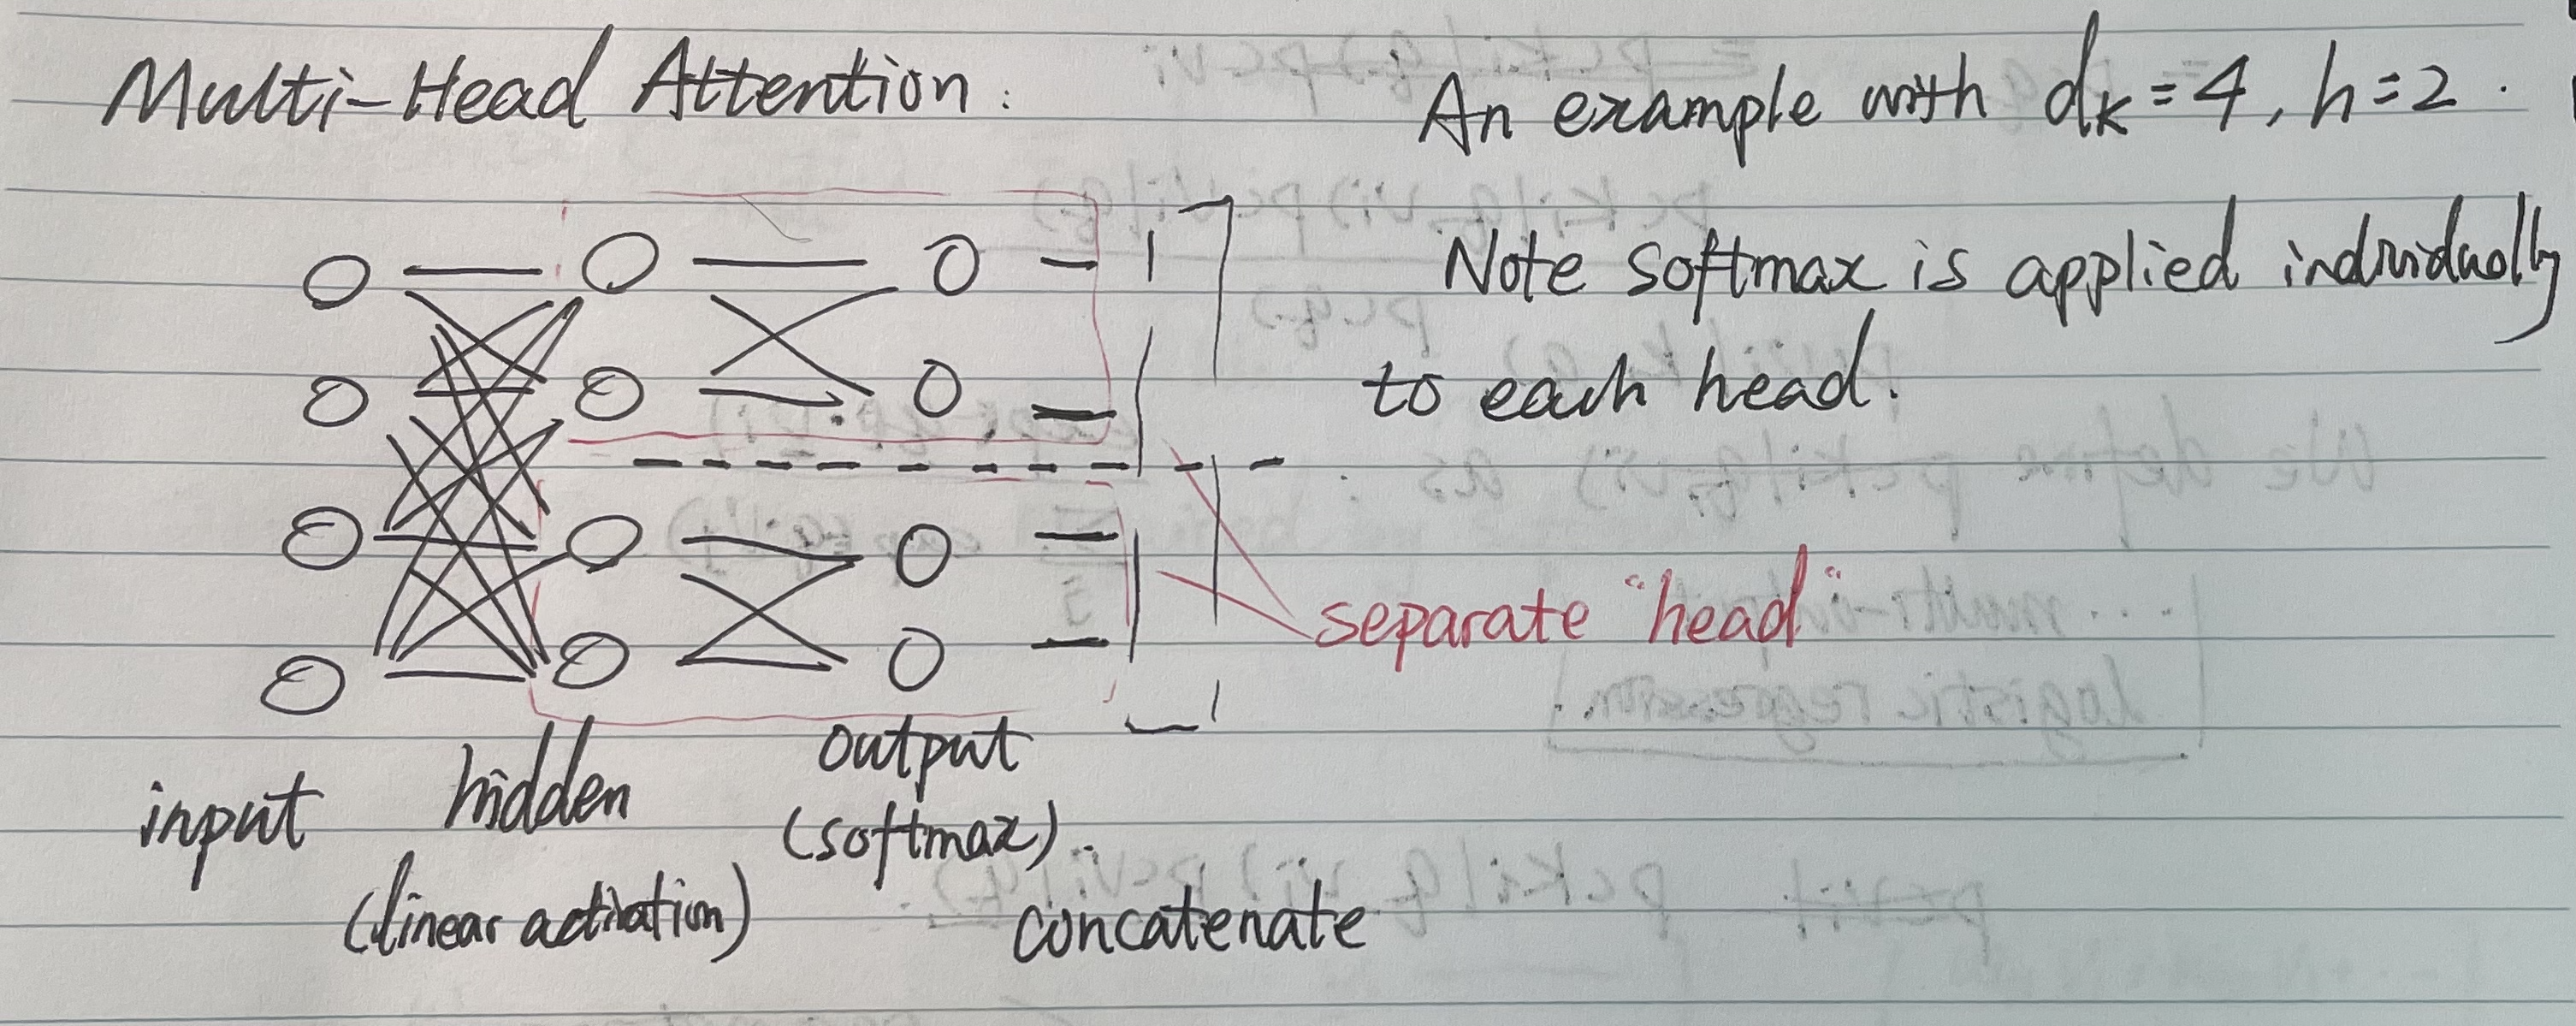 Multi-Head Attention:
An example with dk=4, h=2.
Note softmax is applied individually
to each head.
separate "head"
input
hidden
(linear activation)
output
(softmax).
concatenate